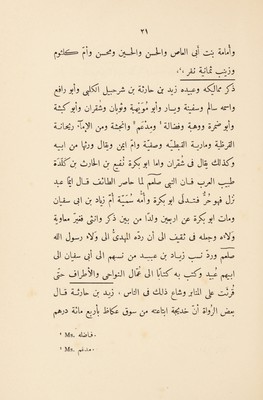 ٣١
وأمامة بنت أبى العاص والحسن والحسين ومحسن وأمّ كلثوم
وزينب ثمانية نفر،،
ذكر مماليكه وعبيده زيد بن حارثة بن شرحبيل الكلبى وأبو رافع
واسمه سالم وسفينة ويسار وأبو مُوَيْهِبة وثوبان وشُقران وأبو كبشة
وأبو ضمرة ووهبة وفضالة ¹ ومدعَم ² وانجشة ومن الإمآء ريحانة
القرظية ومارية القبطيّة وصفيّة وامّ ايمن ويقال ورثها من ابيه
وكذلك يقال فى شقران واما ابو بكرة نُفيع بن الحارث بن كَلدَة
طبيب العرب فان النبى صلعم لما حاصر الطائف قال ايّما عبد
نزل فهو حُرّ فتدلى ابو بكرة وأمّه سُمَيّة أمّ زياد بن ابى سفيان
ومات ابو بكرة عن اربعين ولدًا من بين ذكر وانثى فغير معاوية
ولاءه وجعله فى ثقيف الى أن ردّه المهدىّ الى ولاء رسول الله
صلعم وردّ نسب زياد بن عبيد من نسبهم الى أبى سفيان الى
ابيهم عُبيد وكتب به كتابًا الى عمّال النواحى والأطراف حتّى
قُرئت على المنابر وشاع ذلك فى الناس، زيد بن حارثة قال
بعض الرواة أنّ خديجة ابتاعته من سوق عكاظ بأربع مائة درهم
¹ Ms. فاضله.
² Ms. مدغم.